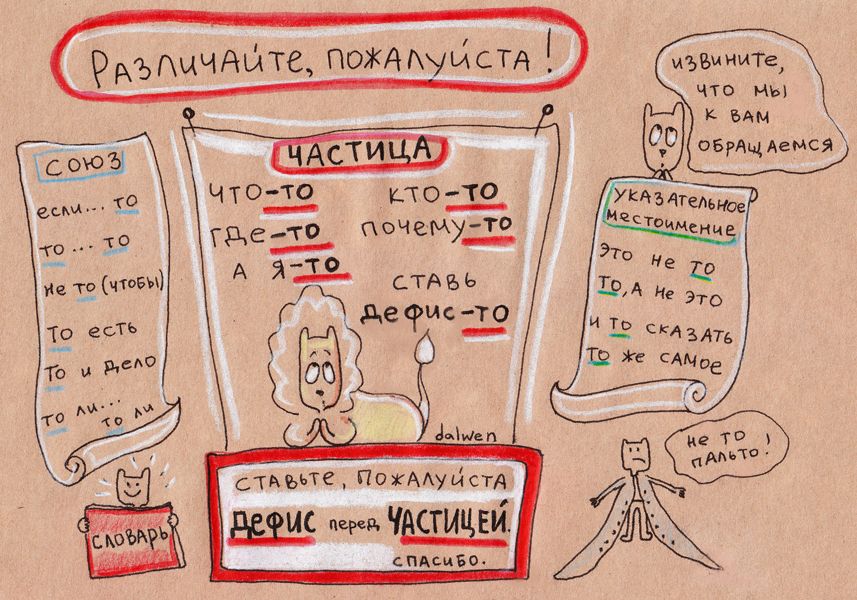 Различайте, пожалуйста!
СОЮЗ
если... то
то... то
не то (чтобы)
то есть
то и дело
то ли...
то ли
СЛОВАРЬ
ЧАСТИЦА
что-то кто-то
где-то почему-то
а я-то
ставь
дефис-то
dalwen
Ставьте, пожалуйста
дефис перед ЧАСТИЦЕЙ.
спасибо.
извините,
что мы
к вам
обращаемся
указательное
местоимение
это не то
то, а не это
и то сказать
то же самое
не то
пальто!